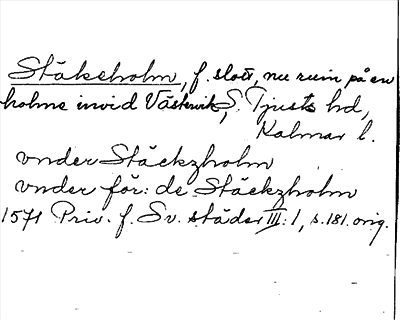 Stäkeholm, f. slott, nu ruin på en
holme invid Västervik, S. Tjusts hd,
Kalmar l.
vnder Stäckzholm
vnder för: de Stäckzholm
1571 Priv. f. Sv. städer III: 1, s. 181. orig.